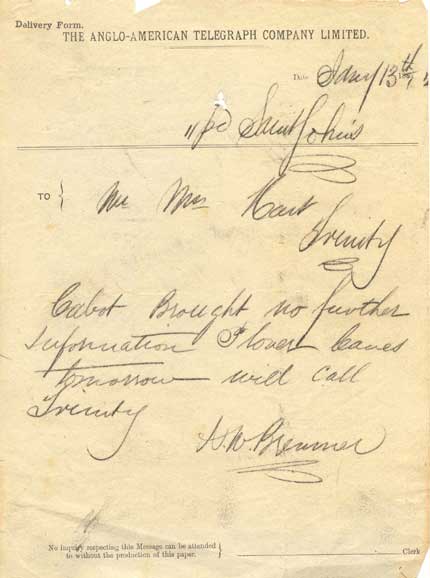 Delivery Form.
THE ANGLO-AMERICAN TELEGRAPH COMPANY LIMITED.
Date Jany 13th
Saint Johns
TO
Mr Mrs
Trinity
Cabot Brought no further
information Plover leaves
tomorrow will call
Trinity
No inquiry respecting this Message can be attended
to without the production of this paper.
Clerk